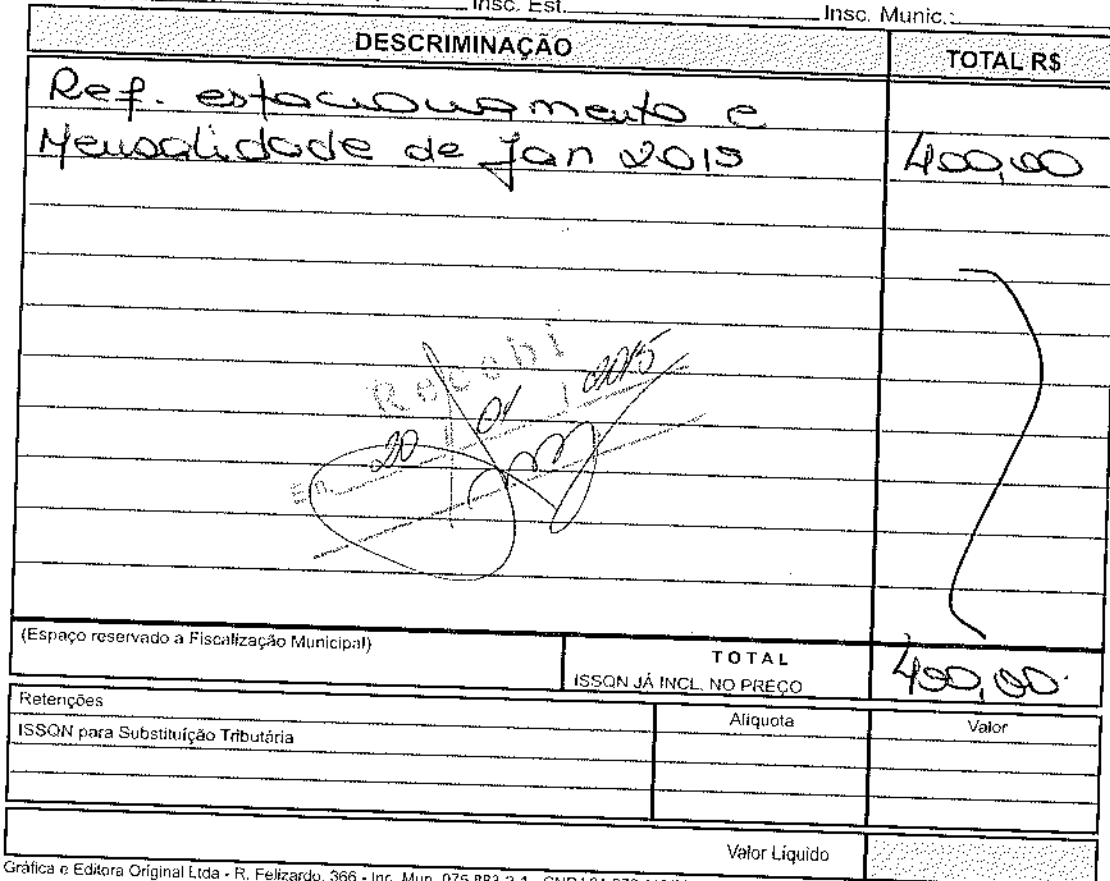 Insc. Est. Insc. Munic.:
DESCRIMINAÇÃO TOTAL R$
Ref. estacionamento e
Mensalidade de Jan 2015 400,00
Recebi
Em 20 / 01 / 2015
(Espaço reservado a Fiscalização Municipal) TOTAL
ISSQN JÁ INCL. NO PREÇO 400,00
Retenções Aliquota Valor
ISSQN para Substituíção Tributária
Valor Líquido
Gráfica e Editora Original Ltda - R. Felizardo, 366 - Inc. Mun. 075.883.2.4